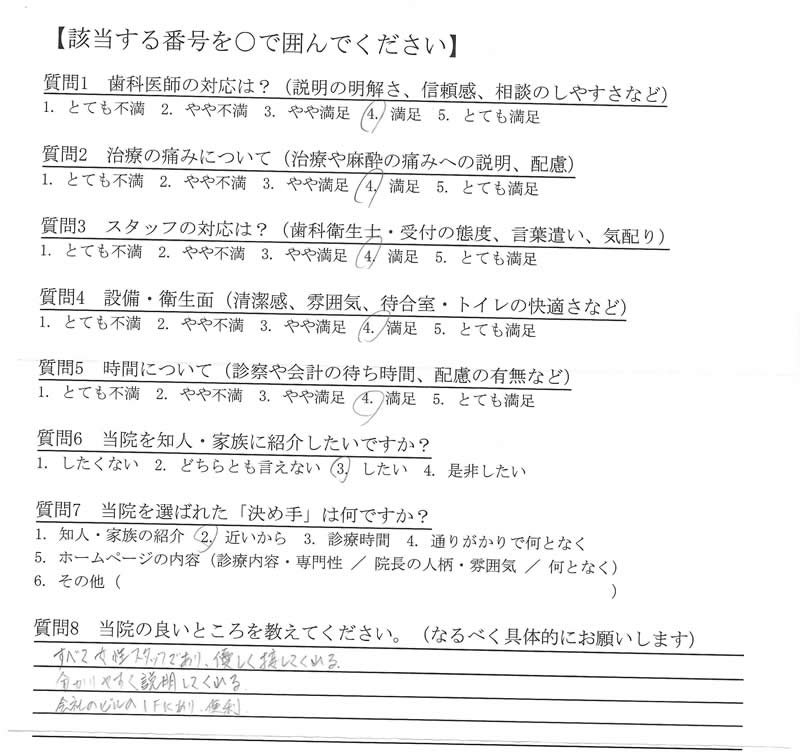 【該当する番号を〇で囲んでください】
質問1　歯科医師の対応は？（説明の明解さ、信頼感、相談のしやすさなど）
1. とても不満　2. やや不満　3. やや満足　4. 満足　5. とても満足
質問2　治療の痛みについて（治療や麻酔の痛みへの説明、配慮）
1. とても不満　2. やや不満　3. やや満足　4. 満足　5. とても満足
質問3　スタッフの対応は？（歯科衛生士・受付の態度、言葉遣い、気配り）
1. とても不満　2. やや不満　3. やや満足　4. 満足　5. とても満足
質問4　設備・衛生面（清潔感、雰囲気、待合室・トイレの快適さなど）
1. とても不満　2. やや不満　3. やや満足　4. 満足　5. とても満足
質問5　時間について（診察や会計の待ち時間、配慮の有無など）
1. とても不満　2. やや不満　3. やや満足　4. 満足　5. とても満足
質問6　当院を知人・家族に紹介したいですか？
1. したくない　2. どちらとも言えない　3. したい　4. 是非したい
質問7　当院を選ばれた「決め手」は何ですか？
1. 知人・家族の紹介　2. 近いから　3. 診療時間　4. 通りがかりで何となく
5. ホームページの内容（診療内容・専門性 ／ 院長の人柄・雰囲気 ／ 何となく）
6. その他（　　　　　　　　　　）
質問8　当院の良いところを教えてください。（なるべく具体的にお願いします）
すべて女性スタッフであり、優しく接してくれる。
分かりやすく説明してくれる。
会社のビルの1Fにあり、便利。